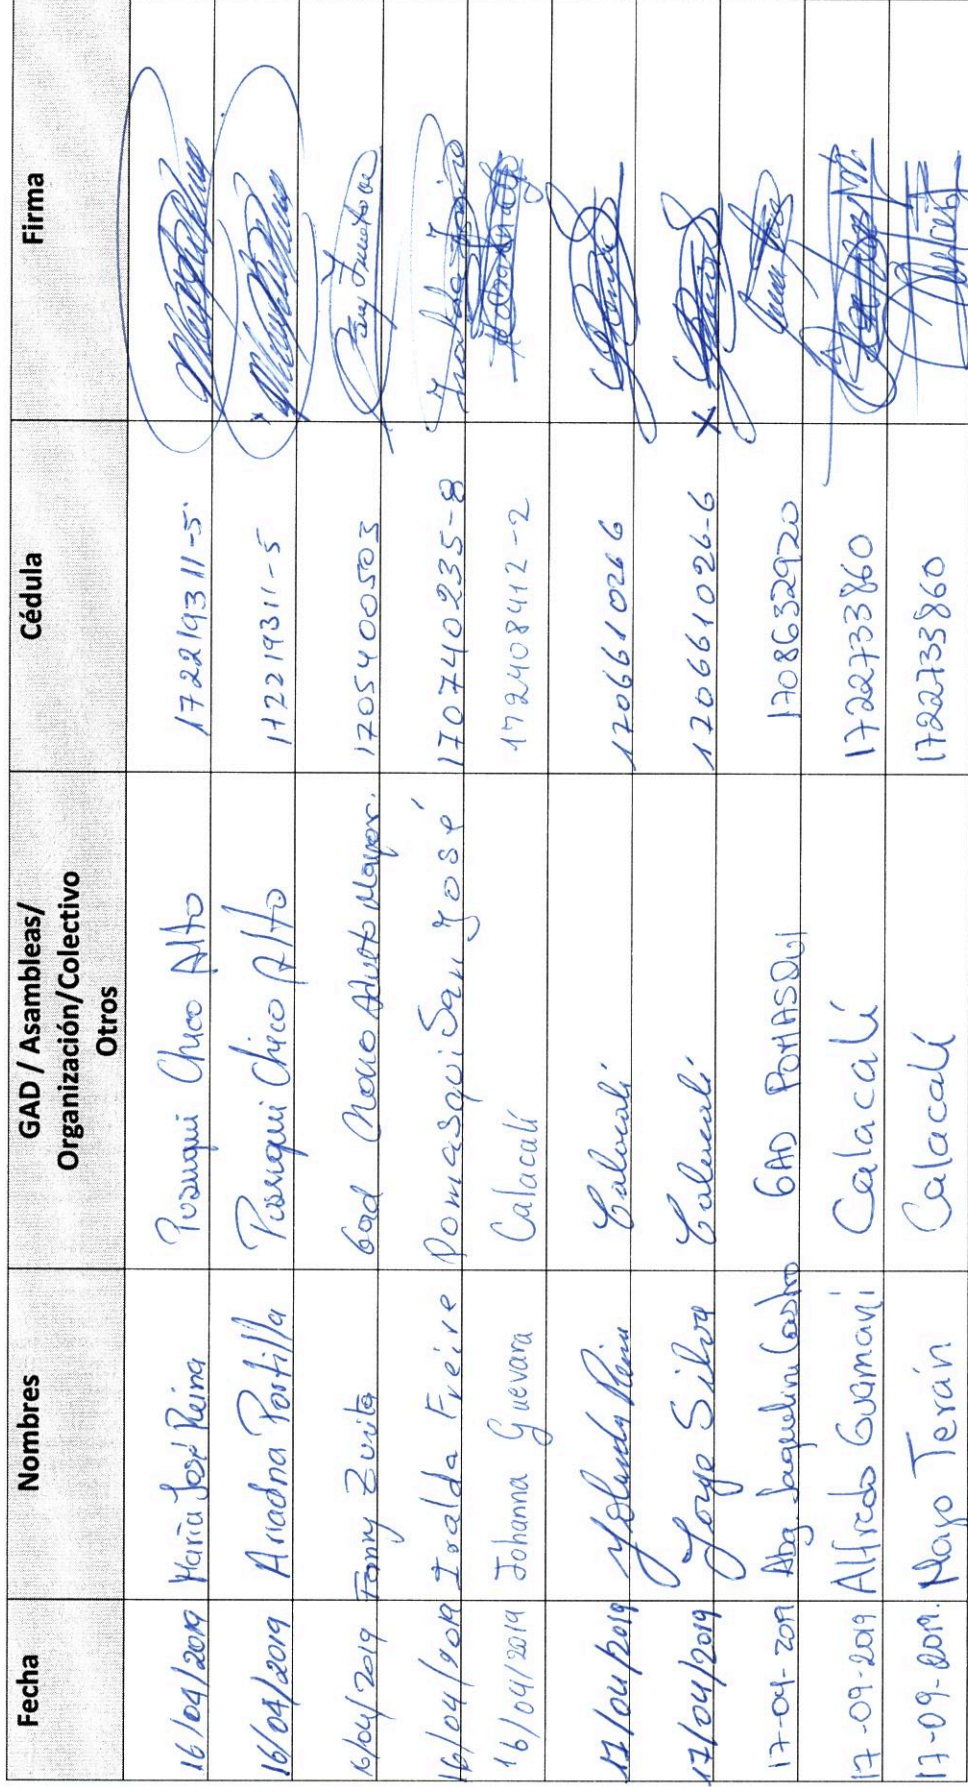 Fecha Nombres GAD / Asambleas/ Cédula Firma
Organización/Colectivo
Otros
16/04/2019 María José Reina Pusuqui Chico Alto 172219311-5
16/04/2019 Ariadna Portilla Pusuqui Chico Alto 172219311-5
16/04/2019 Fanny Zurita Gad Adulto Mayor. 1705400503
16/04/2019 Iralda Freire Pomasqui San José 170740235-8
16/04/2019 Johanna Guevara Calacalí 172408412-2
17/04/2019 Yolanda Calacalí 1706610266
17/04/2019 Jorge Silva Calacalí 170661026-6
17-04-2019 Abg. Jaquelin Castro GAD POMASQUI 1708632920
17-09-2019 Alfredo Guamaní Calacalí 1722733860
17-09-2019. Mayo Terán Calacalí 1722733860